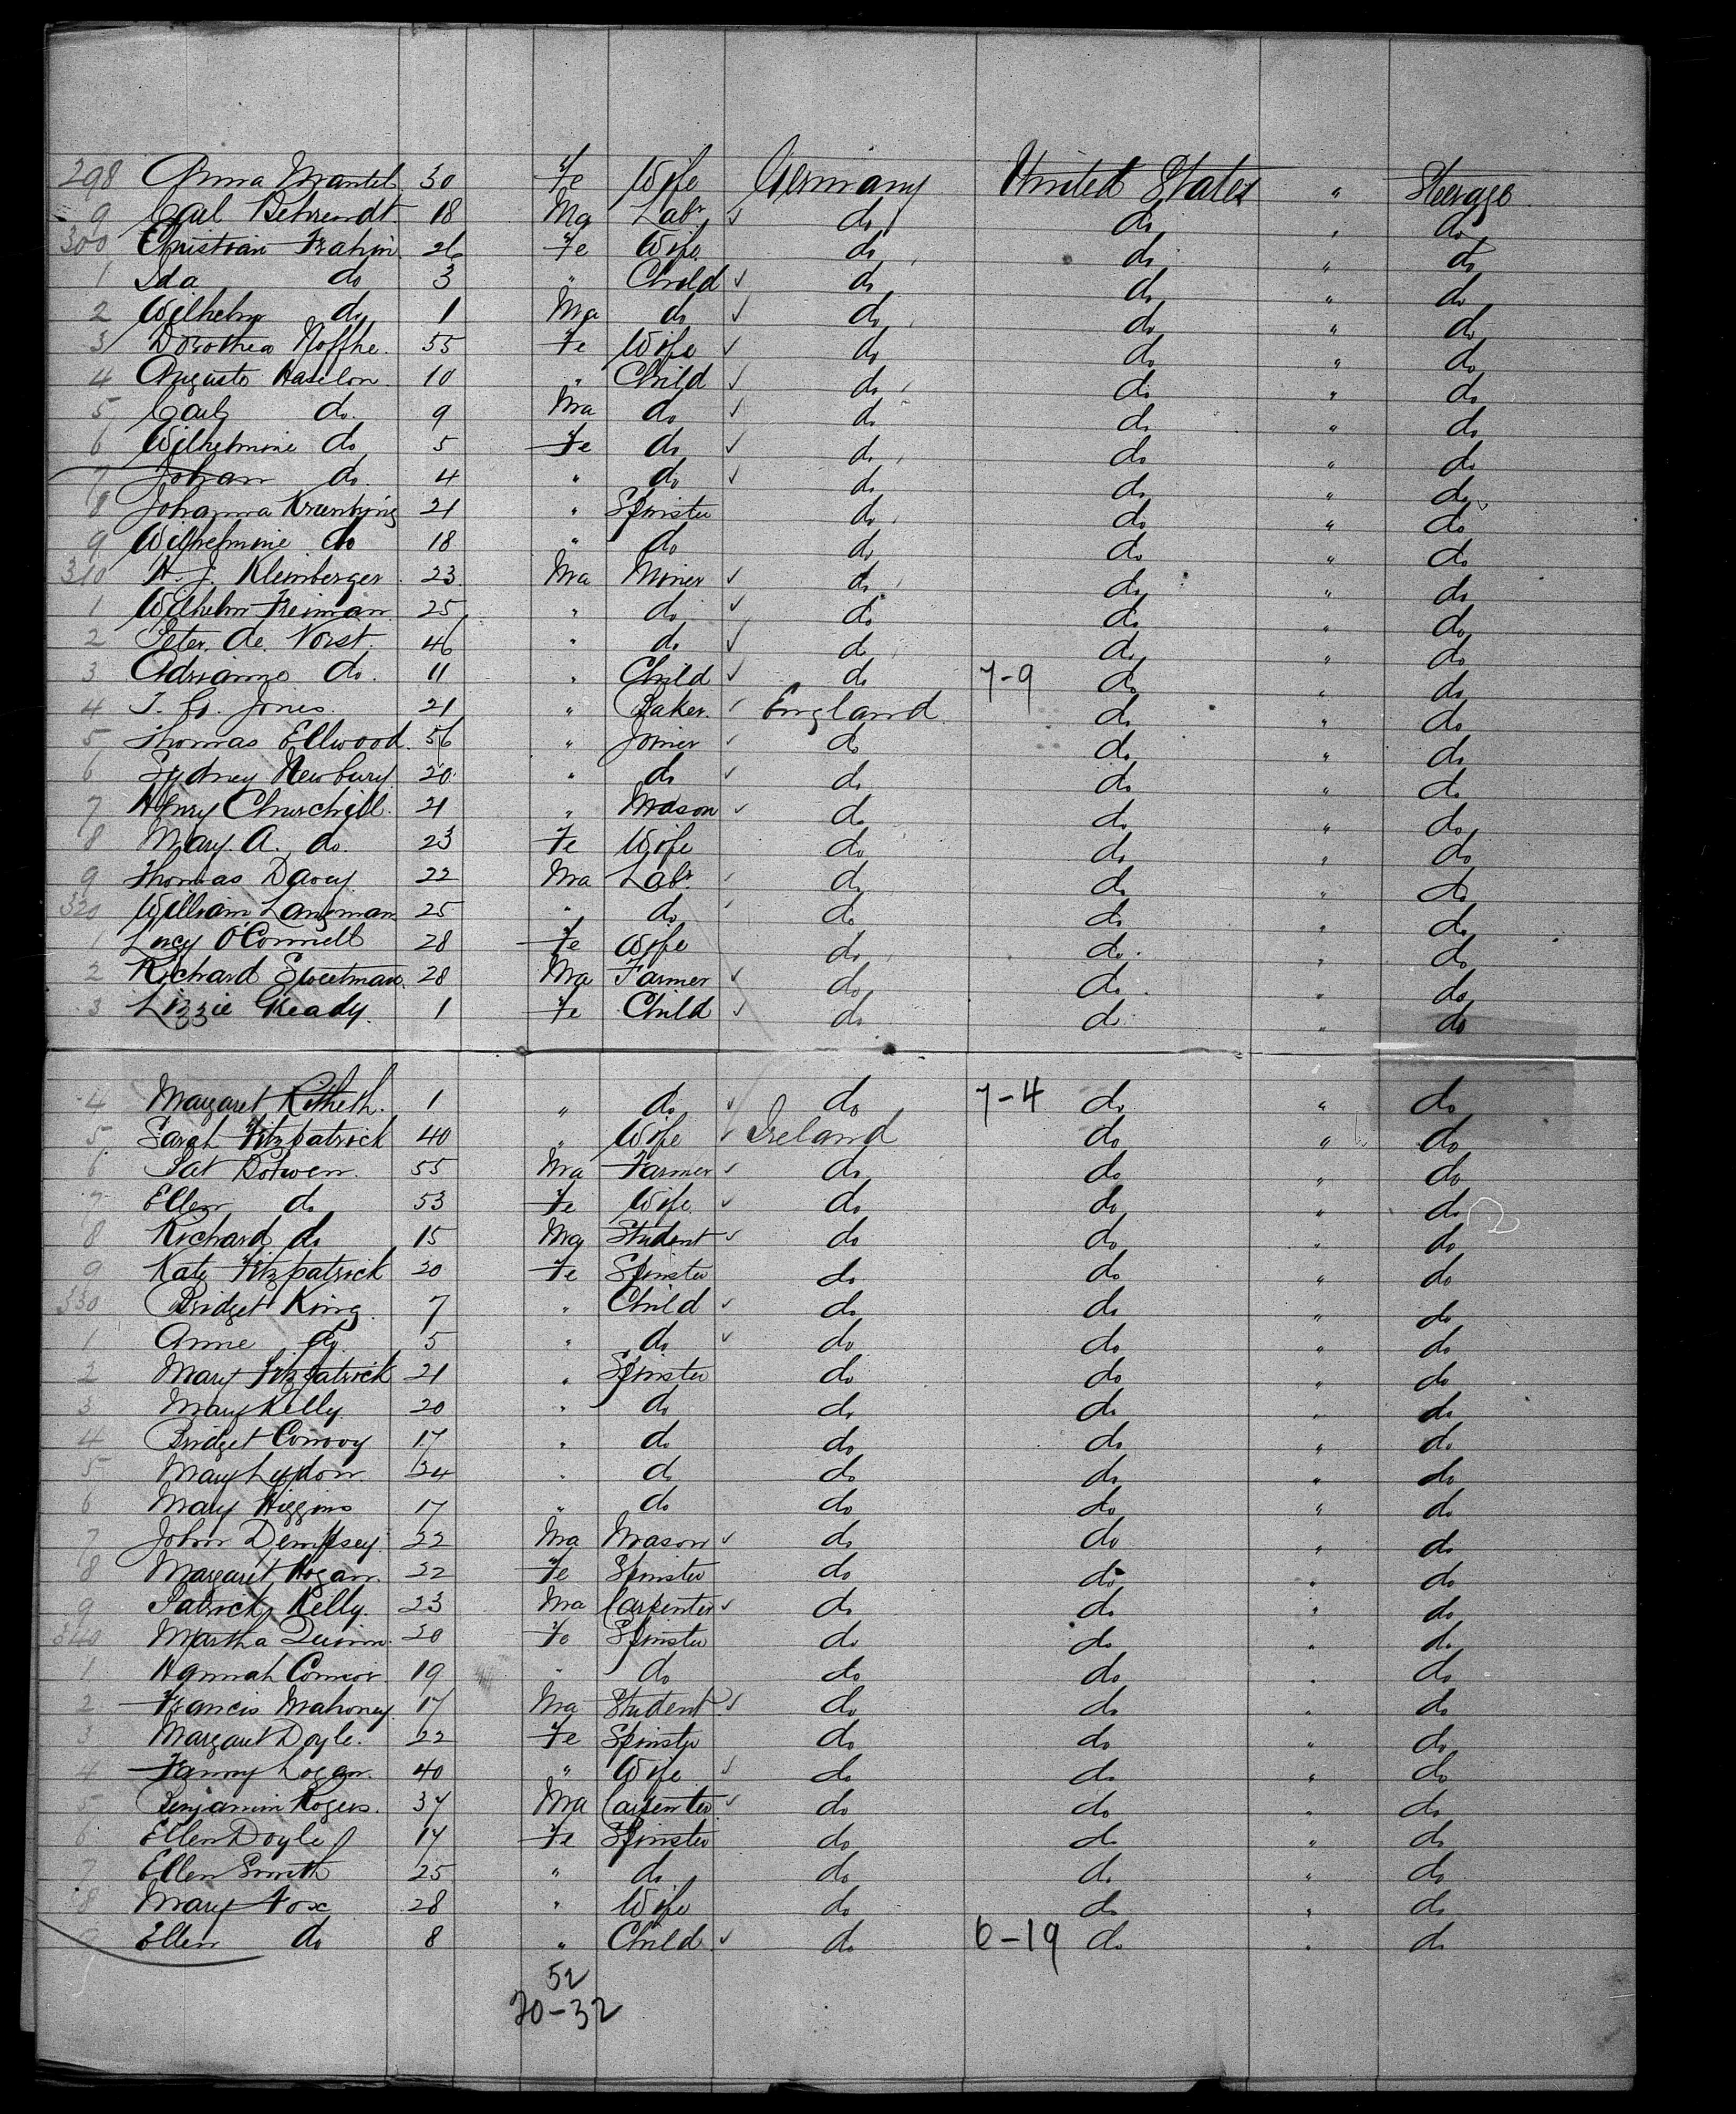 298 Anna Mantel 30 Fe Wife Germany United States " Steerage
9 Carl Behrendt 18 Ma Labr ✓ do do " do
300 Christian Frahm 26 Fe Wife do do " do
1 Ida do 3 " Child ✓ do do " do
2 Wilhelm do 1 Ma do ✓ do do " do
3 Dorothea Noffke 55 Fe Wife ✓ do do " do
4 Auguste Haselon 10 " Child ✓ do do " do
5 Carl do 9 Ma do ✓ do do " do
6 Wilhelmine do 5 Fe do ✓ do do " do
7 Johan do 4 " do ✓ do do " do
8 Johanna 21 " Spinster do do " do
9 Wilhelmine do 18 " do do do " do
310 H. J. Kleinberger 23 Ma Miner ✓ do do " do
1 Wilhelm Freiman 25 " do ✓ do do " do
2 Peter de Vorst 46 " do ✓ do do " do
3 Adrianne do 11 " Child ✓ do 7-9 do " do
4 T. G. Jones 21 " Baker ✓ England do " do
5 Thomas Ellwood 56 " Joiner ✓ do do " do
6 Sydney Newbury 20 " do ✓ do do " do
7 Henry Churchill 21 " Mason ✓ do do " do
8 Mary A. do 23 Fe Wife do do " do
9 Thomas Davey 22 Ma Labr ✓ do do " do
320 William Langman 25 " do ✓ do do " do
1 Lucy O'Connell 28 Fe Wife do do " do
2 Richard Sweetman 28 Ma Farmer ✓ do do " do
3 Lizzie Keady 1 Fe Child ✓ do do " do
4 Margaret 1 " do ✓ do 7-4 do " do
5 Sarah Fitzpatrick 40 " Wife ✓ Ireland do " do
6 Pat 55 Ma Farmer ✓ do do " do
7 Ellen do 53 Fe Wife ✓ do do " do
8 Richard do 15 Ma Student ✓ do do " do
9 Kate Fitzpatrick 20 Fe Spinster do do " do
330 Bridget King 7 " Child ✓ do do " do
1 Anne do 5 " do ✓ do do " do
2 Mary Fitzpatrick 21 " Spinster do do " do
3 Mary Kelly 20 " do do do " do
4 Bridget Conroy 17 " do do do " do
5 Mary Lydon 24 " do do do " do
6 Mary Higgins 17 " do do do " do
7 John Dempsey 22 Ma Mason ✓ do do " do
8 Margaret Hogan 22 Fe Spinster do do " do
9 Patrick Kelly 23 Ma Carpenter ✓ do do " do
340 Martha Quinn 20 Fe Spinster do do " do
1 Hannah Connor 19 " do do do " do
2 Francis Mahoney 17 Ma Student ✓ do do " do
3 Margaret Doyle 22 Fe Spinster do do " do
4 Fanny Logan 40 " Wife ✓ do do " do
5 Benjamin Rogers 37 Ma Carpenter ✓ do do " do
6 Ellen Doyle 17 Fe Spinster do do " do
7 Ellen Smith 25 " do do do " do
8 Mary Fox 28 " Wife do do " do
9 Ellen do 8 " Child ✓ do 6-19 do " do
52
20-32